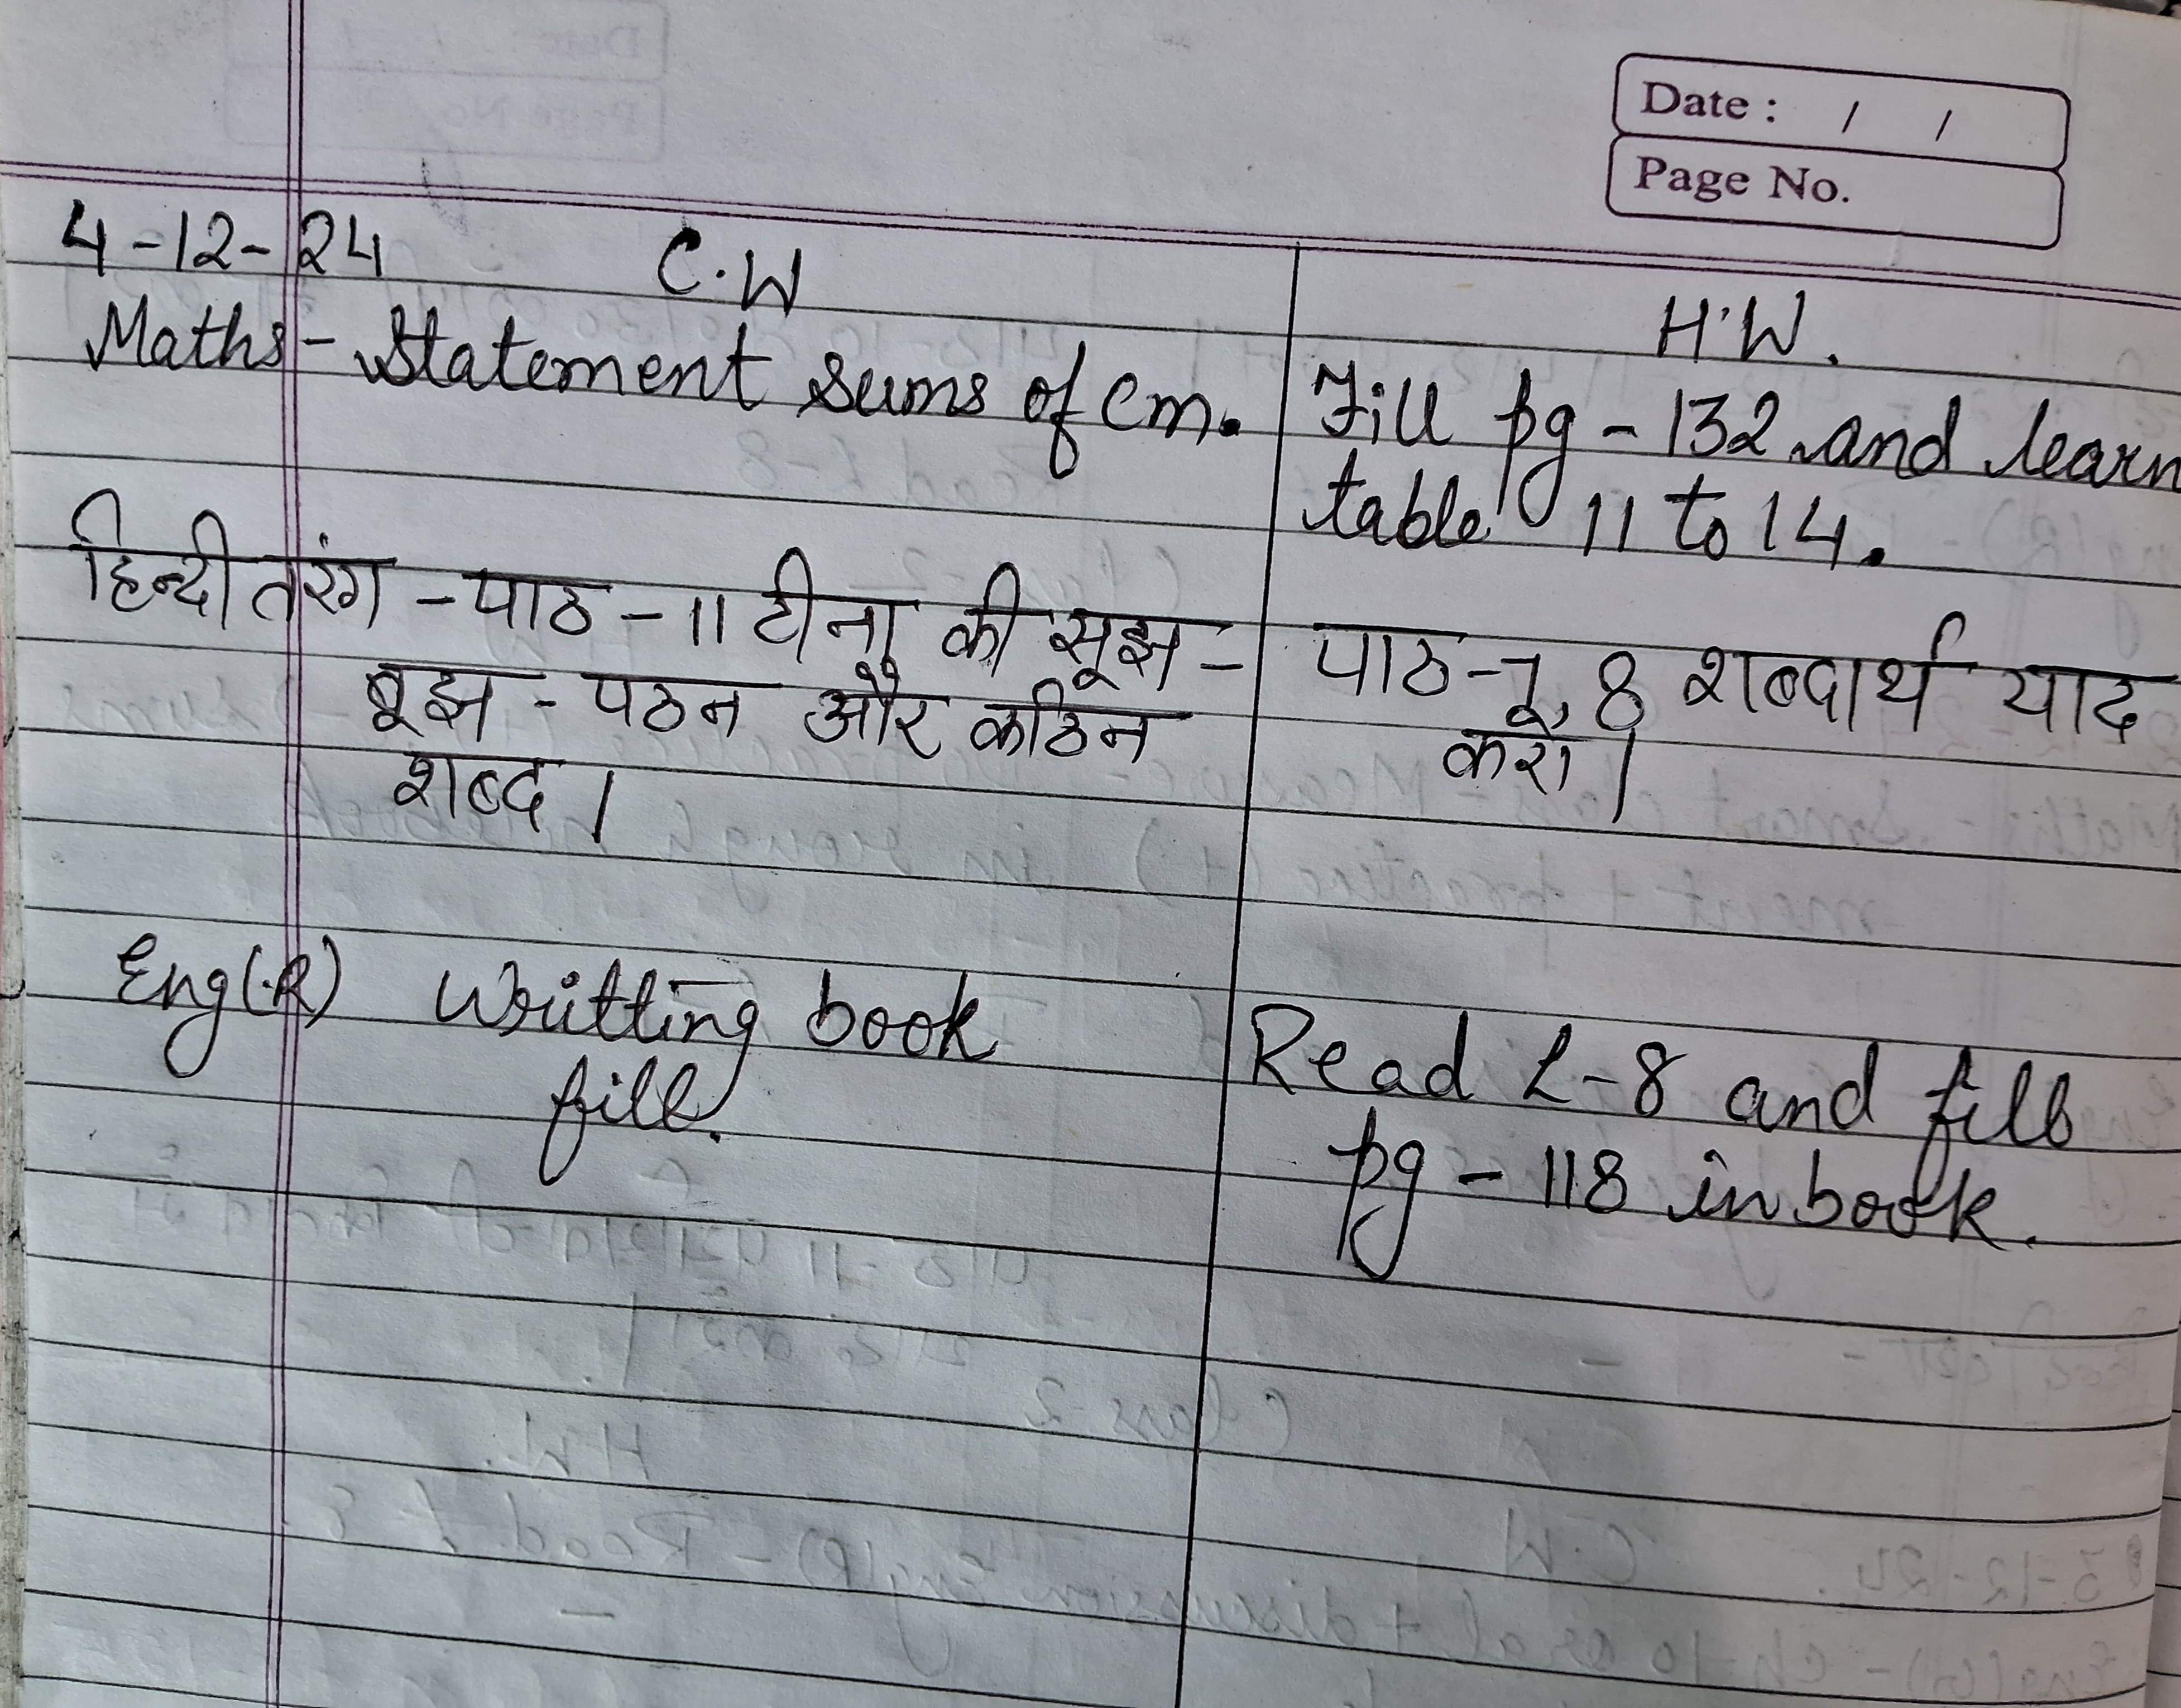 Date : / /
Page No.
4-12-24 C.W
Maths - Statement Sums of cm.
हिन्दी तरंग - पाठ - 11 टीना की सूझ -
बूझ - पठन और कठिन
शब्द।
Eng(R) Writting book
fill.
H.W.
Fill pg - 132 and learn
table 11 to 14.
पाठ - 7, 8 शब्दार्थ याद
करो।
Read L-8 and fill
pg - 118 in book.